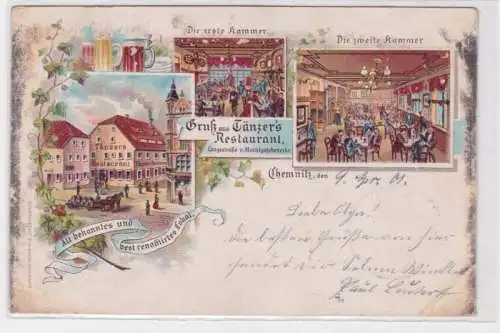 Die erste Kammer
Die zweite Kammer
Gruß aus Tänzer's
Restaurant,
Langestraße u. Marktgässchenecke.
Tänzers
Restaurant
Chemnitz, den 9. Apr. 01.
Alt bekanntes und
best renomirtes Lokal.
Liebe Olga!
die besten Grüße von hier
sendet dir Selma
Paul